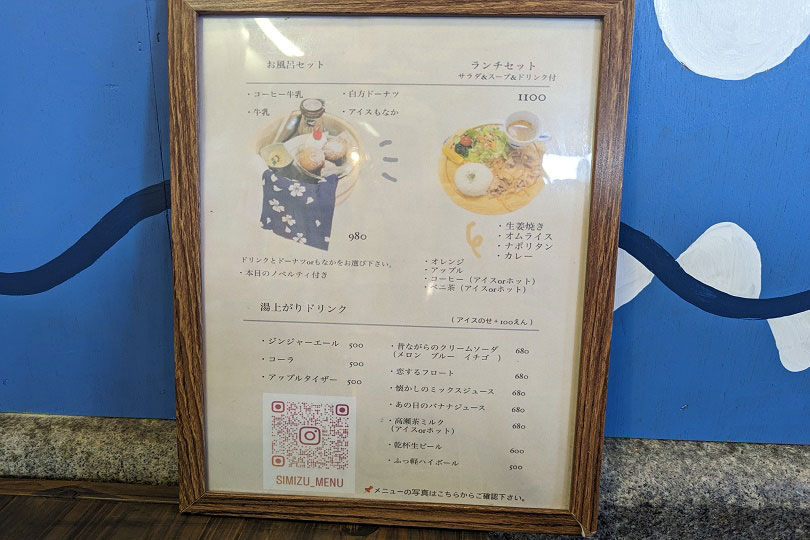 お風呂セット
・コーヒー牛乳 ・白方ドーナツ
・牛乳 ・アイスもなか
980
ドリンクとドーナツorもなかをお選び下さい。
・本日のノベルティ付き
ランチセット
サラダ&スープ&ドリンク付
1100
・生姜焼き
・オムライス
・ナポリタン
・カレー
・オレンジ
・アップル
・コーヒー（アイスorホット）
・ベニ茶（アイスorホット）
湯上がりドリンク
（アイスのせ+100えん）
・ジンジャーエール 500
・コーラ 500
・アップルタイザー 500
・昔ながらのクリームソーダ 680
（メロン ブルー イチゴ ）
・恋するフロート 680
・懐かしのミックスジュース 680
・あの日のバナナジュース 680
・高瀬茶ミルク 680
（アイスorホット）
・乾杯生ビール 600
・ふっ軽ハイボール 500
SIMIZU_MENU
メニューの写真はこちらからご確認下さい。